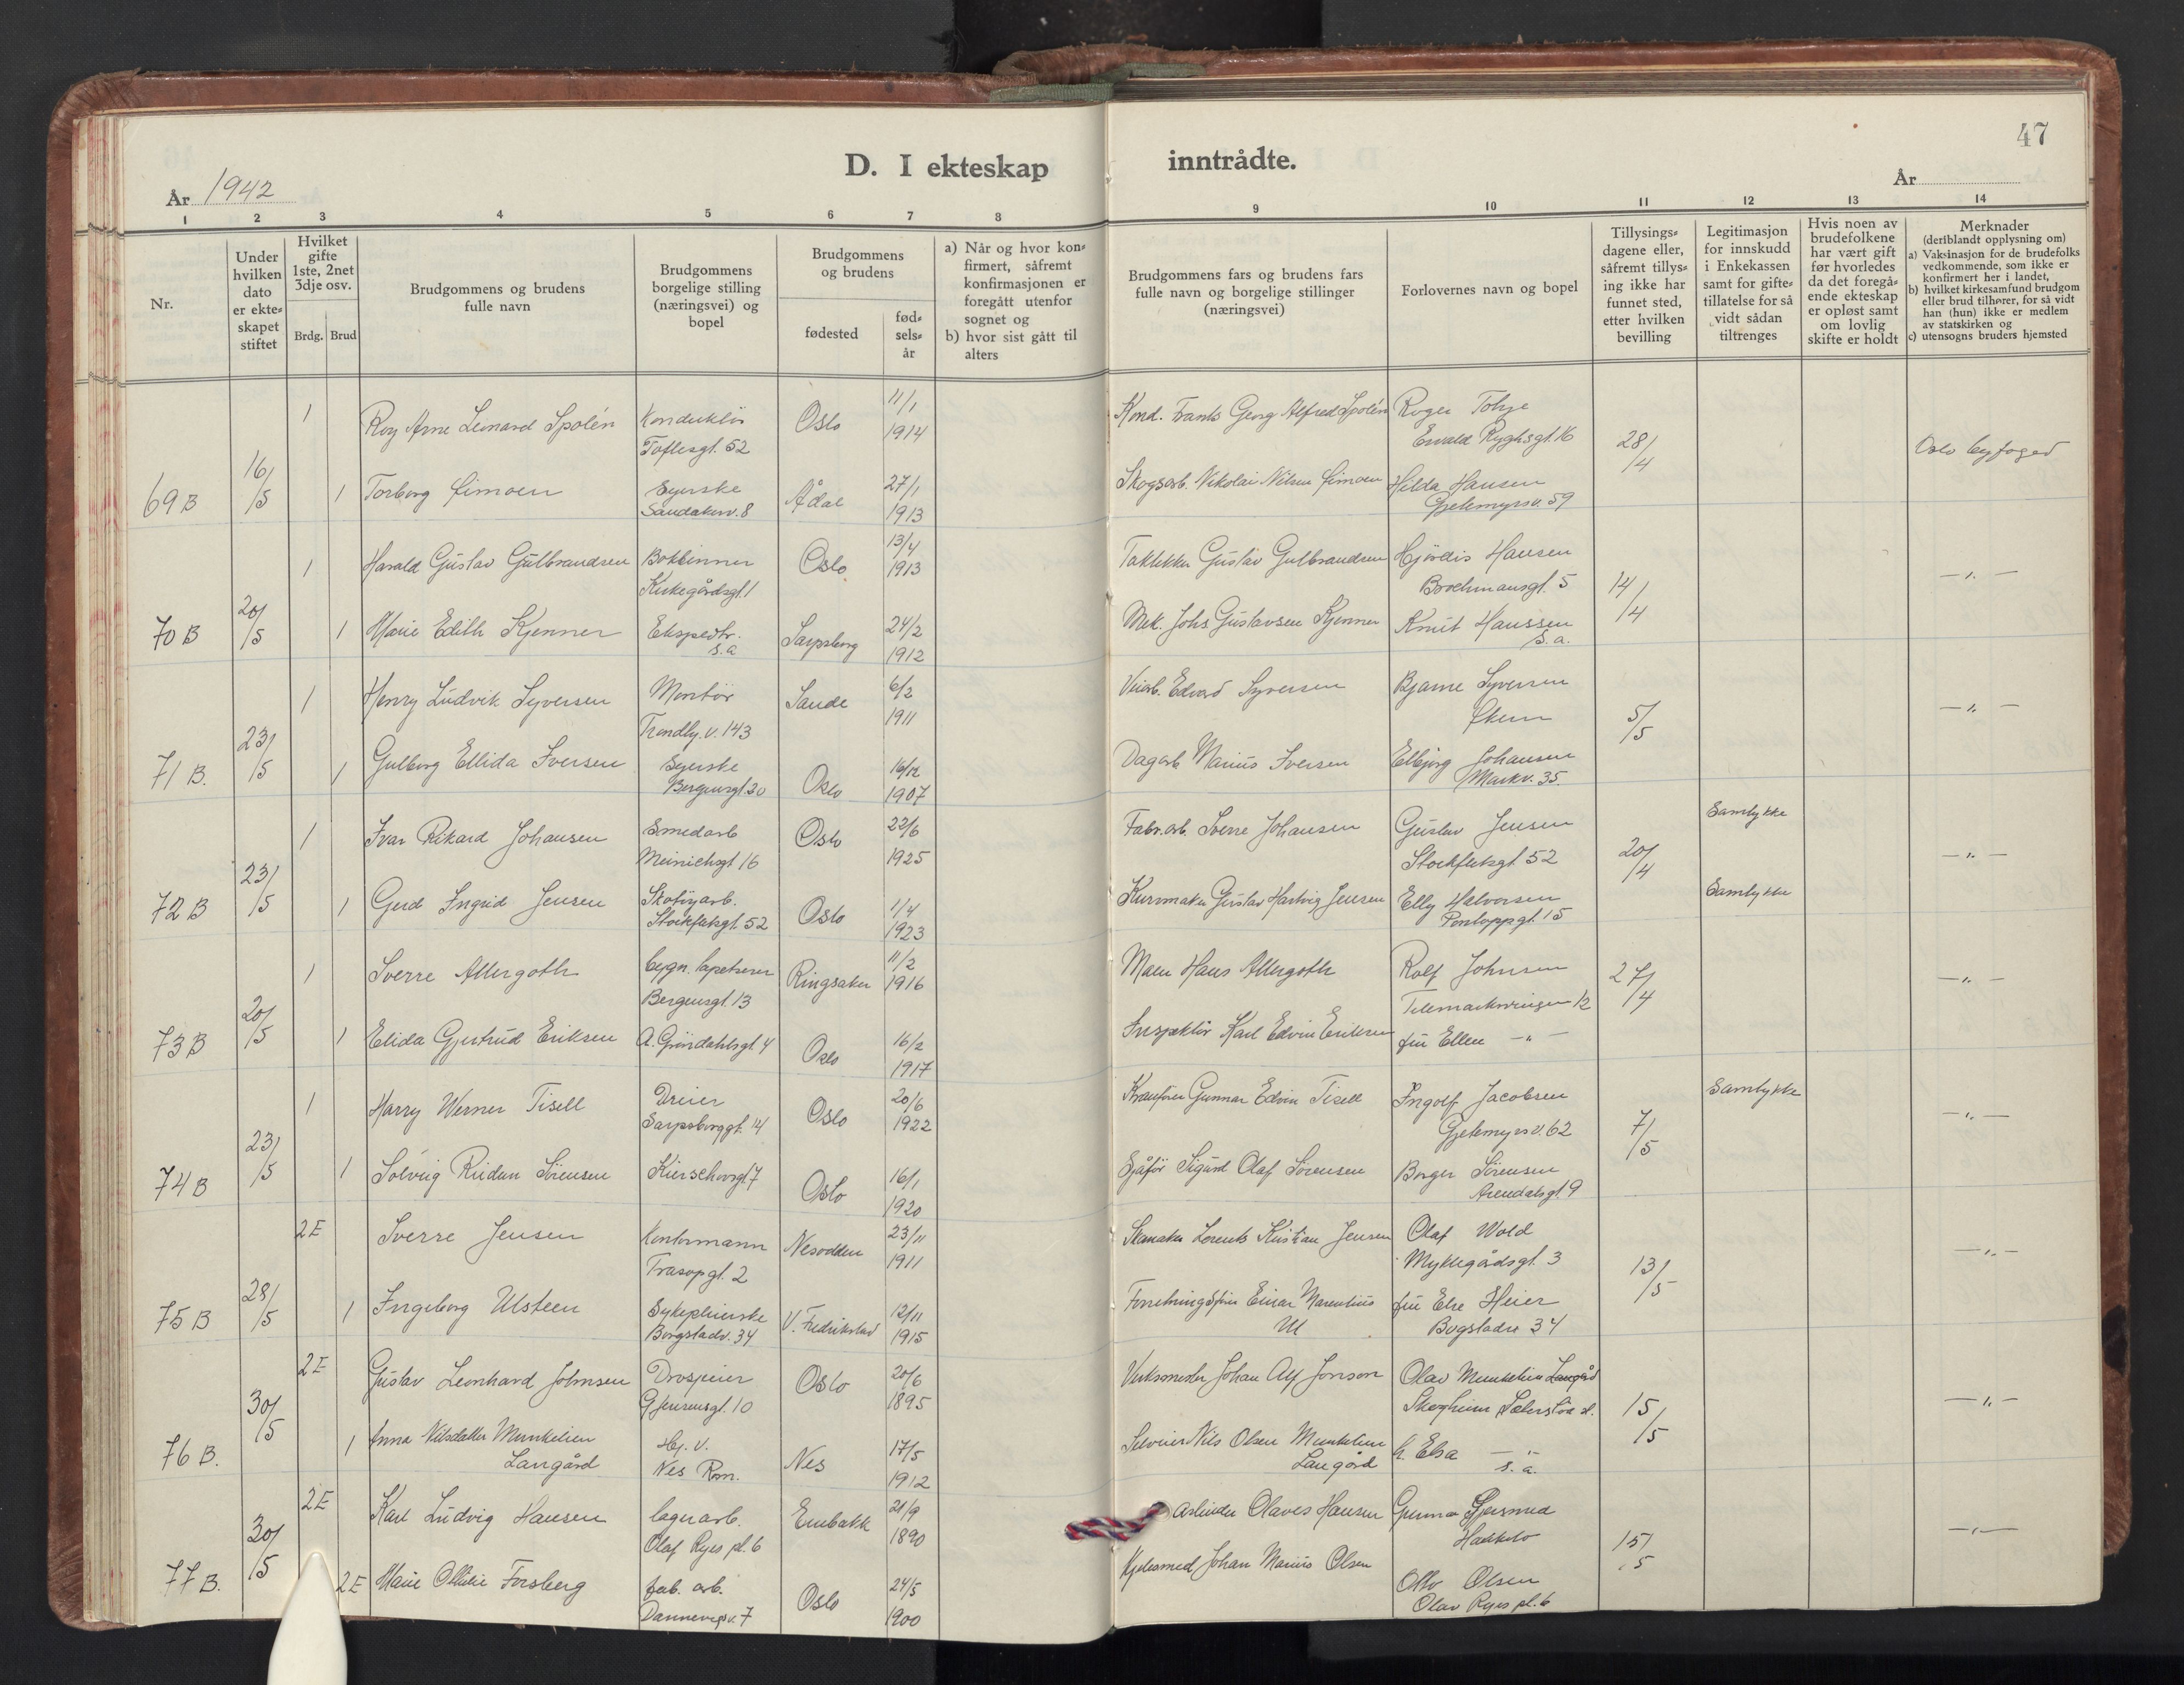 47
D. I ekteskap inntrådte.
År 1942
År
1 2 3 4 5 6 7 8 9 10 11 12 13 14
Nr.
Under hvilken dato er ekte-skapet stiftet
Hvilket gifte 1ste, 2net 3dje osv.
Brdg. Brud
Brudgommens og brudens fulle navn
Brudgommens borgelige stilling (næringsvei) og bopel
Brudgommens og brudens
fødested
fød-sels-år
a) Når og hvor kon-firmert, såfremt konfirmasjonen er foregått utenfor sognet og
b) hvor sist gått til alters
Brudgommens fars og brudens fars fulle navn og borgelige stillinger (næringsvei)
Forlovernes navn og bopel
Tillysings-dagene eller, såfremt tillys-ing ikke har funnet sted, etter hvilken bevilling
Legitimasjon for innskudd i Enkekassen samt for gifte-tillatelse for så vidt sådan tiltrenges
Hvis noen av brudefolkene har vært gift før hvorledes da det foregå-ende ekteskap er opløst samt om lovlig skifte er holdt
Merknader (deriblandt opplysning om)
a) Vaksinasjon for de brudefolks vedkommende, som ikke er konfirmert her i landet,
b) hvilket kirkesamfund brudgom eller brud tilhører, for så vidt han (hun) ikke er medlem av statskirken og
c) utensogns bruders hjemsted
1 Roy Arne Leonard Spolén Konduktör Toftesgt. 52 Oslo 11/1 1914 Kond. Frants Georg Alfred Spolén Roger Evald Ryghsgt. 16 28/4 Oslo byfoged
69 B 16/5 1 Torborg Syerske Sandakerv. 8 Ådal 27/1 1913 Skogsarb. Nikolai Nilsen Hilda Hansen Gjetemyrsv. 59
1 Harald Gustav Gulbrandsen Bokbinner Kirkegårdsgt. 1 Oslo 13/4 1913 Taktekker Gustav Gulbrandsen Hjördis Hansen Brochmansgt. 5 14/4 — " —
70 B 20/5 1 Marie Edith Kjenner Ekspedtr. s.a Sarpsborg 24/2 1912 Mek. Johs Gustavsen Kjenner Knut Hanssen s.a.
1 Henry Ludvik Syversen Montör Trondhj.v. 143 Sande 6/2 1911 Veiarb. Edvard Syversen Bjarne Syversen Økern 5/5 — " —
71 B. 23/5 1 Gulborg Ellida Iversen Syerske Bergensgt. 20 Oslo 16/12 1907 Dagarb Marius Iversen Elbjörg Johansen Markv. 35.
1 Ivar Rikard Johansen Smedarb Meinichsgt 16 Oslo 22/6 1925 Fabr.arb. Sverre Johansen Gustav Jensen Stockfletsgt. 52 20/4 Samtykke — " —
72 B 23/5 1 Gerd Ingrid Jensen Skotöyarb. Stockfletsgt. 52 Oslo 1/4 1923 Kurvmaker Gustav Hartvig Jensen Elly Halvorsen Pontoppgt. 15 Samtykke
1 Sverre Allergoth bygn. tapetserer Bergensgt. 13 Ringsaker 11/2 1916 Maler Hans Allergoth Rolf Johnsen Telemarksvingen 12 27/4 — " —
73 B 20/5 1 Elida Gjertrud Eriksen A. Gröndahlsgt. 4 Oslo 16/2 1917 Inspektör Karl Edvin Eriksen fru Ellen — " —
1 Harry Werner Tisell Dreier Sarpsborggt. 14 Oslo 20/6 1922 Kranförer Gunnar Edvin Tisell Ingolf Jacobsen Gjetemyrsv. 62 7/5 Samtykke — " —
74 B 23/5 1 Solveig Reidun Sörensen Kierschowsgt 7 Oslo 16/1 1920 Sjåför Sigurd Olaf Sörensen Borger Sörensen Arendalsgt. 9
2 E Sverre Jensen Kontormann Trasopgt. 2 Nesodden 23/11 1911 Lorents Kristian Jensen Olaf Wold Myklegårdsgt. 3 13/5 — " —
75 B 28/5 1 Ingeborg Ulsteen Sykepleierske Bogstadv. 34 V. Fredrikstad 12/11 1915 Einar Marentius fru Else Heier Bogstadv 34
2 E Gustav Leonhard Johnsen Gjerensgt. 10 Oslo 20/6 1895 Verksmester Johan Alf Jonson Olav Munkelien Langård 15/5 — " —
76 B. 30/5 1 Anna Nilsdatter Munkelien Langård Hj. v. Nes Rom. Nes 17/5 1912 Nils Olsen Munkelien Langård fr. Elsa — " — s.a.
2 E Karl Ludvig Hansen lagerarb. Olaf Ryes pl. 6 Enebakk 21/9 1890 Arbeider Olaves Hansen Gunnar 15/5 — " —
77 B. 30/5 2 E Marie Ottilie Forsberg fab. arb. Dannevigsv. 7 Oslo 24/5 1900 Kjelesmed Johan Marius Olsen Otto Olsen Olav Ryes pl. 6